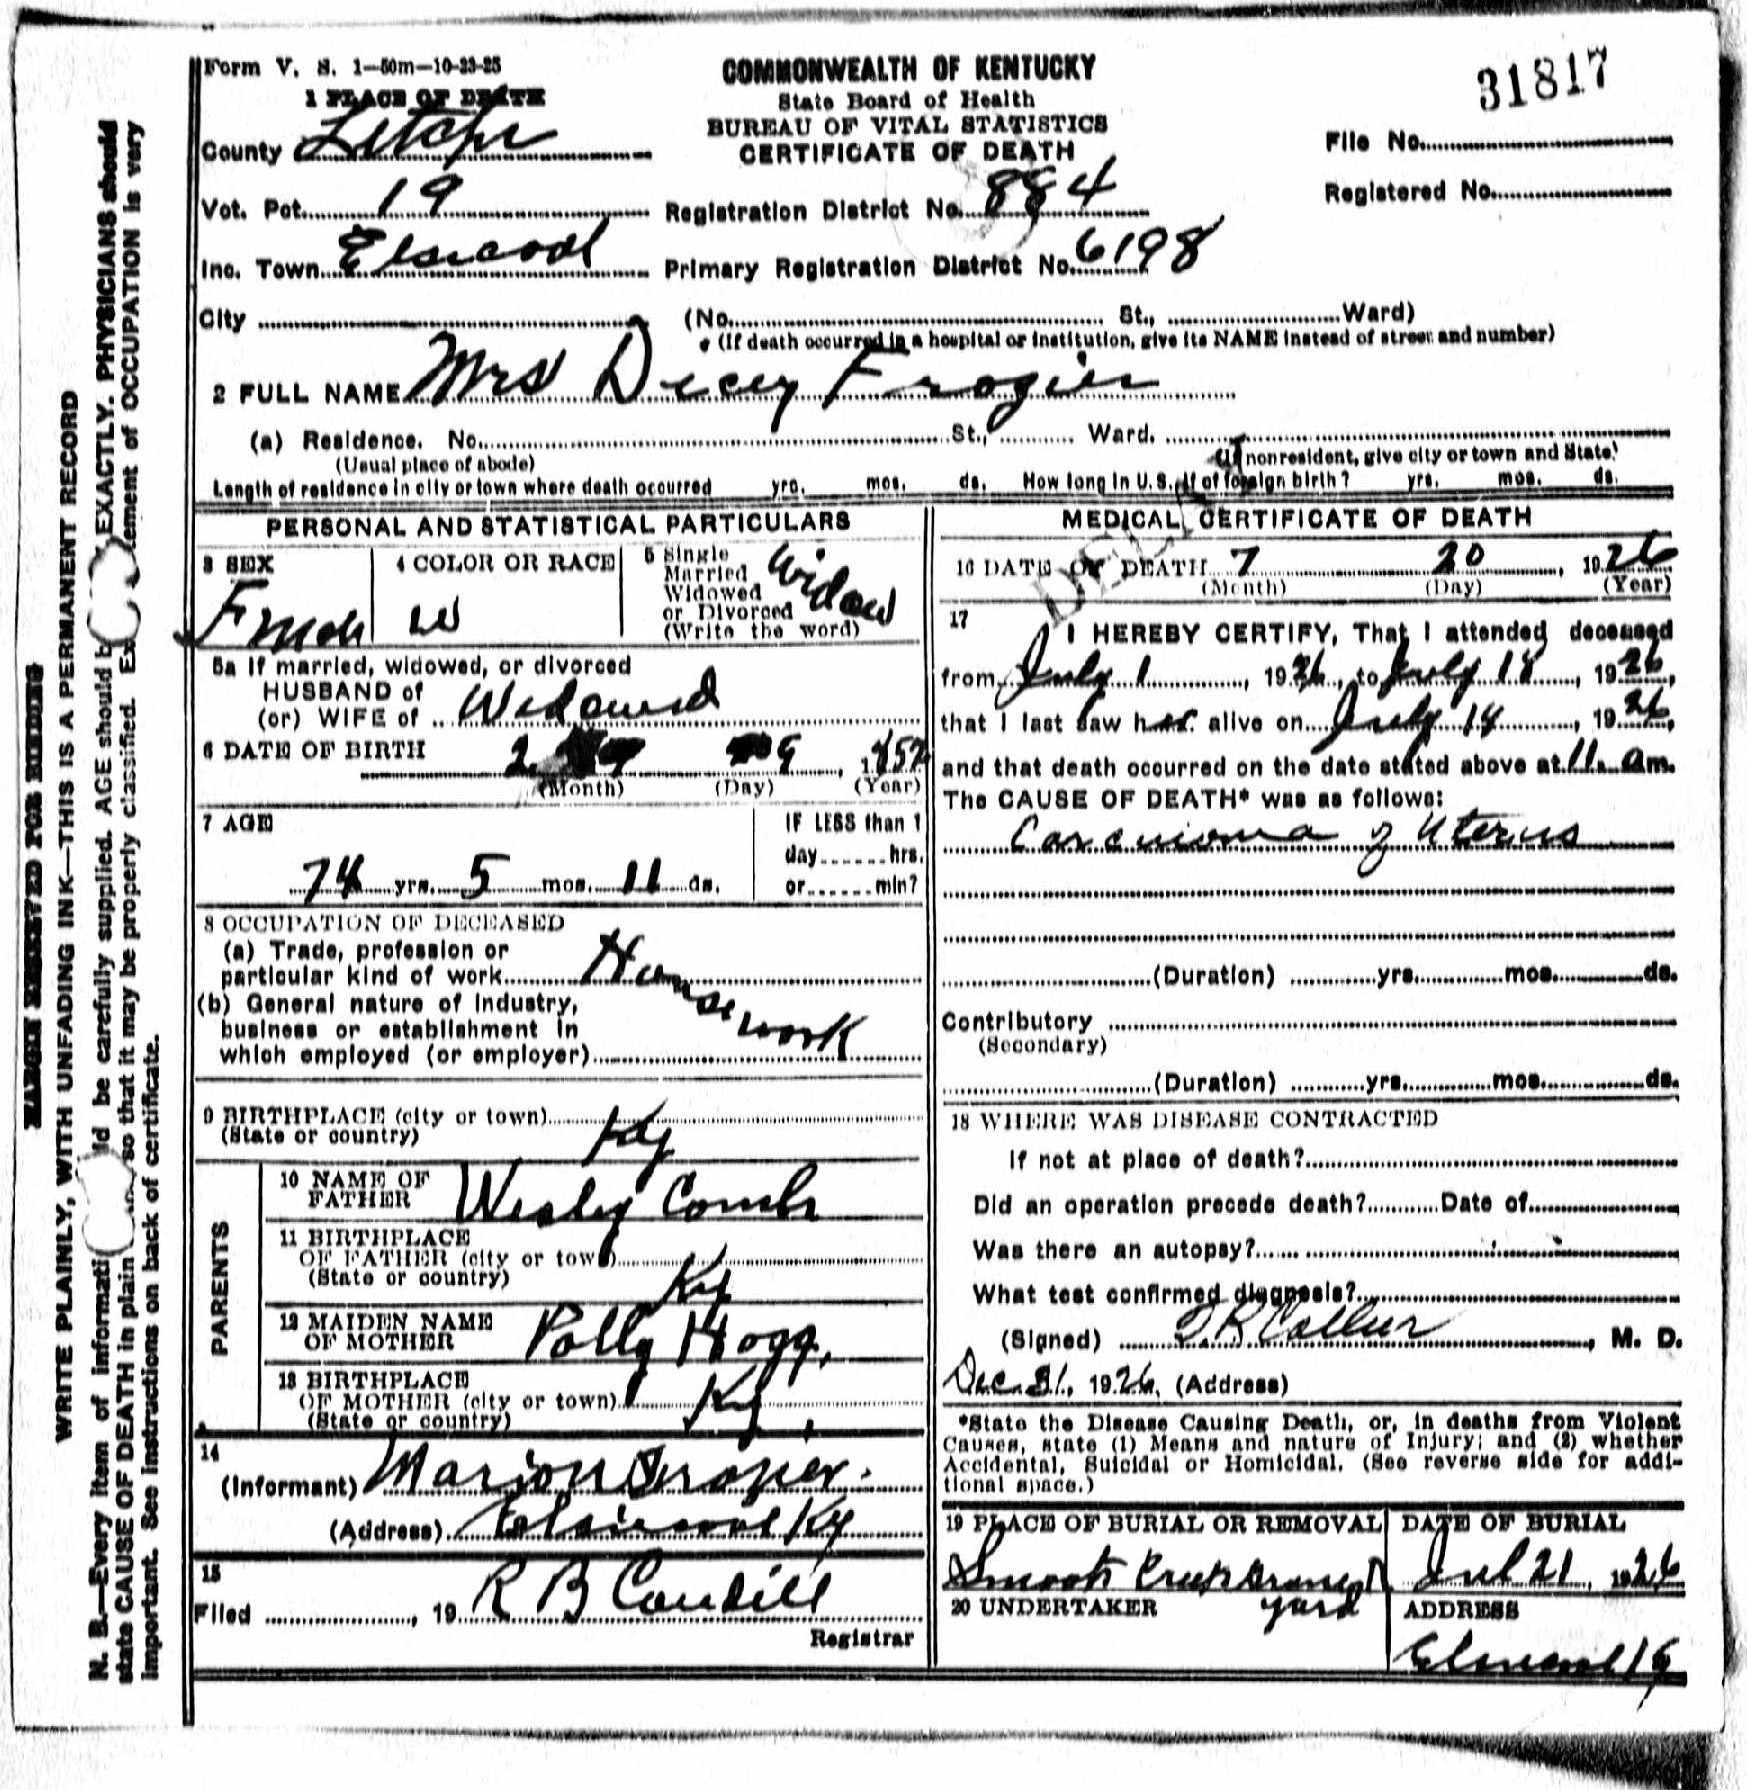 Form V. S. 1—50m—10-23-25
COMMONWEALTH OF KENTUCKY
State Board of Health
BUREAU OF VITAL STATISTICS
CERTIFICATE OF DEATH
31817
File No.
Registered No.
1 PLACE OF DEATH
County Letcher
Vot. Pct. 19 Registration District No. 884
Inc. Town Primary Registration District No. 6198
City (No. St., Ward)
(If death occurred in a hospital or institution, give its NAME instead of street and number)
2 FULL NAME Mrs Dicey Frazier
(a) Residence. No. St., Ward.
(Usual place of abode) (If nonresident, give city or town and State)
Length of residence in city or town where death occurred yrs. mos. ds. How long in U.S. if of foreign birth? yrs. mos. ds.
PERSONAL AND STATISTICAL PARTICULARS
3 SEX
4 COLOR OR RACE W
5 Single
Married
Widowed
or Divorced
(Write the word) Widow
5a If married, widowed, or divorced
HUSBAND of
(or) WIFE of Widowed
6 DATE OF BIRTH 2 9, 1852
(Month) (Day) (Year)
7 AGE
74 yrs. 5 mos. 11 ds.
IF LESS than 1
day hrs.
or min?
8 OCCUPATION OF DECEASED
(a) Trade, profession or
particular kind of work House
(b) General nature of industry,
business or establishment in work
which employed (or employer)
9 BIRTHPLACE (city or town)
(State or country) Ky
PARENTS
10 NAME OF
FATHER Wesley Comb
11 BIRTHPLACE
OF FATHER (city or town)
(State or country) Ky
12 MAIDEN NAME
OF MOTHER Polly Hogg,
13 BIRTHPLACE
OF MOTHER (city or town)
(State or country) Ky
14
(Informant) Marion Frazier
(Address) Ky
15
Filed , 19 R B Caudill
Registrar
MEDICAL CERTIFICATE OF DEATH
16 DATE OF DEATH 7 20, 1926
(Month) (Day) (Year)
17
I HEREBY CERTIFY, That I attended deceased
from July 1, 1926, to July 18, 1926,
that I last saw her alive on July 14, 1926,
and that death occurred on the date stated above at 11. am.
The CAUSE OF DEATH* was as follows:
Carcinoma of Uterus
(Duration) yrs. mos. ds.
Contributory
(Secondary)
(Duration) yrs. mos. ds.
18 WHERE WAS DISEASE CONTRACTED
If not at place of death?
Did an operation precede death? Date of
Was there an autopsy?
What test confirmed diagnosis?
(Signed) , M. D.
Dec. 31, 1926, (Address)
*State the Disease Causing Death, or, in deaths from Violent
Causes, state (1) Means and nature of Injury; and (2) whether
Accidental, Suicidal or Homicidal. (See reverse side for addi-
tional space.)
19 PLACE OF BURIAL OR REMOVAL
Creek
yard
DATE OF BURIAL
Jul 21, 1926
20 UNDERTAKER
ADDRESS
Ky
MARGIN RESERVED FOR BINDING
WRITE PLAINLY, WITH UNFADING INK—THIS IS A PERMANENT RECORD
N. B.—Every item of informati ld be carefully supplied. AGE should b EXACTLY. PHYSICIANS should
state CAUSE OF DEATH in plain so that it may be properly classified. Ex tement of OCCUPATION is very
important. See instructions on back of certificate.